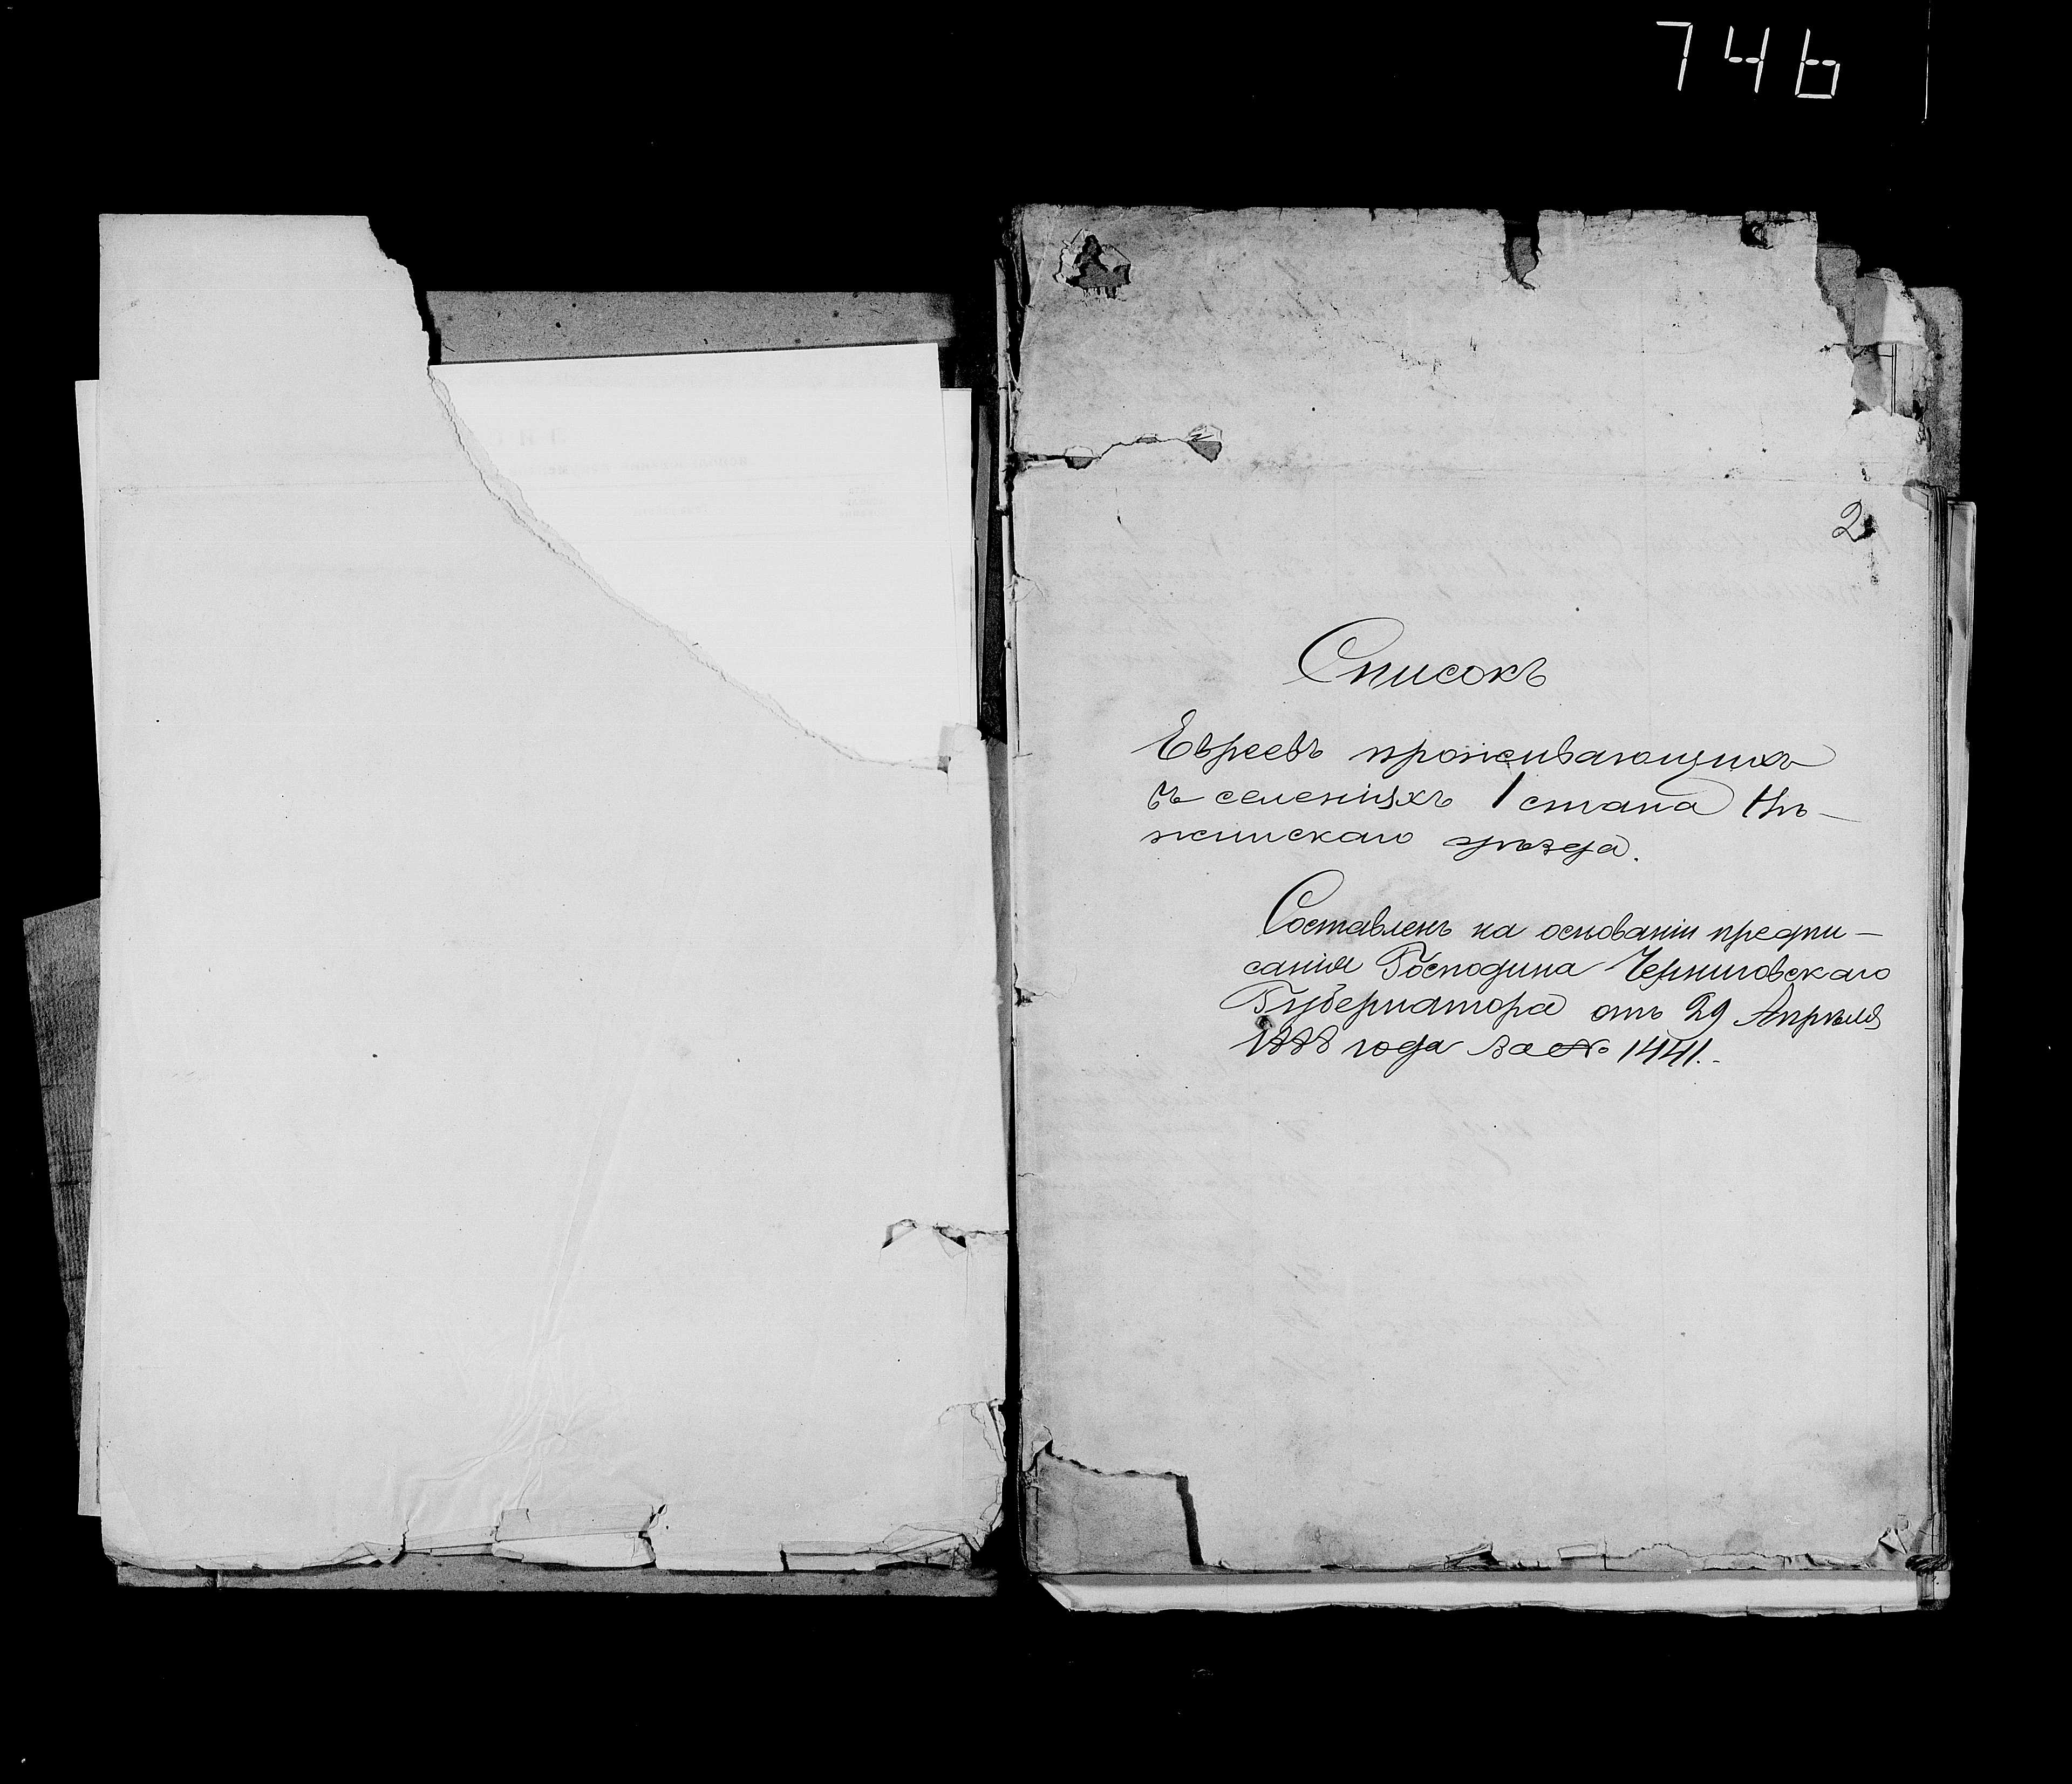 746
2
Списокъ
Евреевъ проживающихъ
въ селеніяхъ 1 стана Нѣ-
жинскаго уѣзда.
Составленъ на основаніи предпи-
санія Господина Черниговскаго
Губернатора отъ 29 Апрѣля
1888 года за № 1441.-